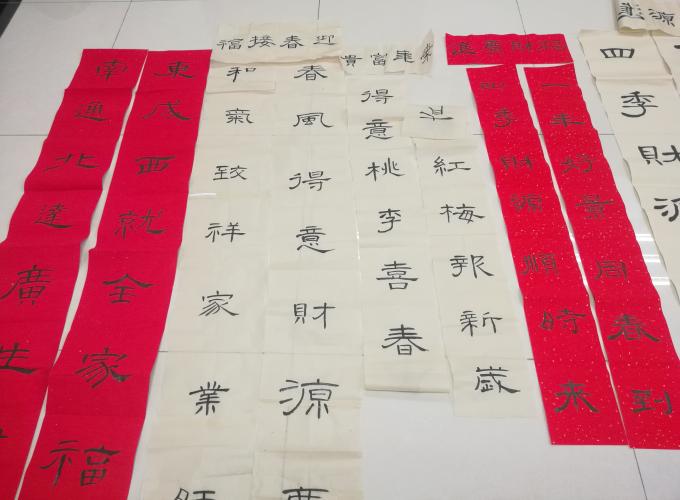 東成西就全家福
南通北達廣生
迎春接福
春風得意財源廣
和氣致祥家業
富貴
得意桃李喜春
紅梅報新歲
財廣進
一年好景同春到
四季財源順時来
四季財源
源進